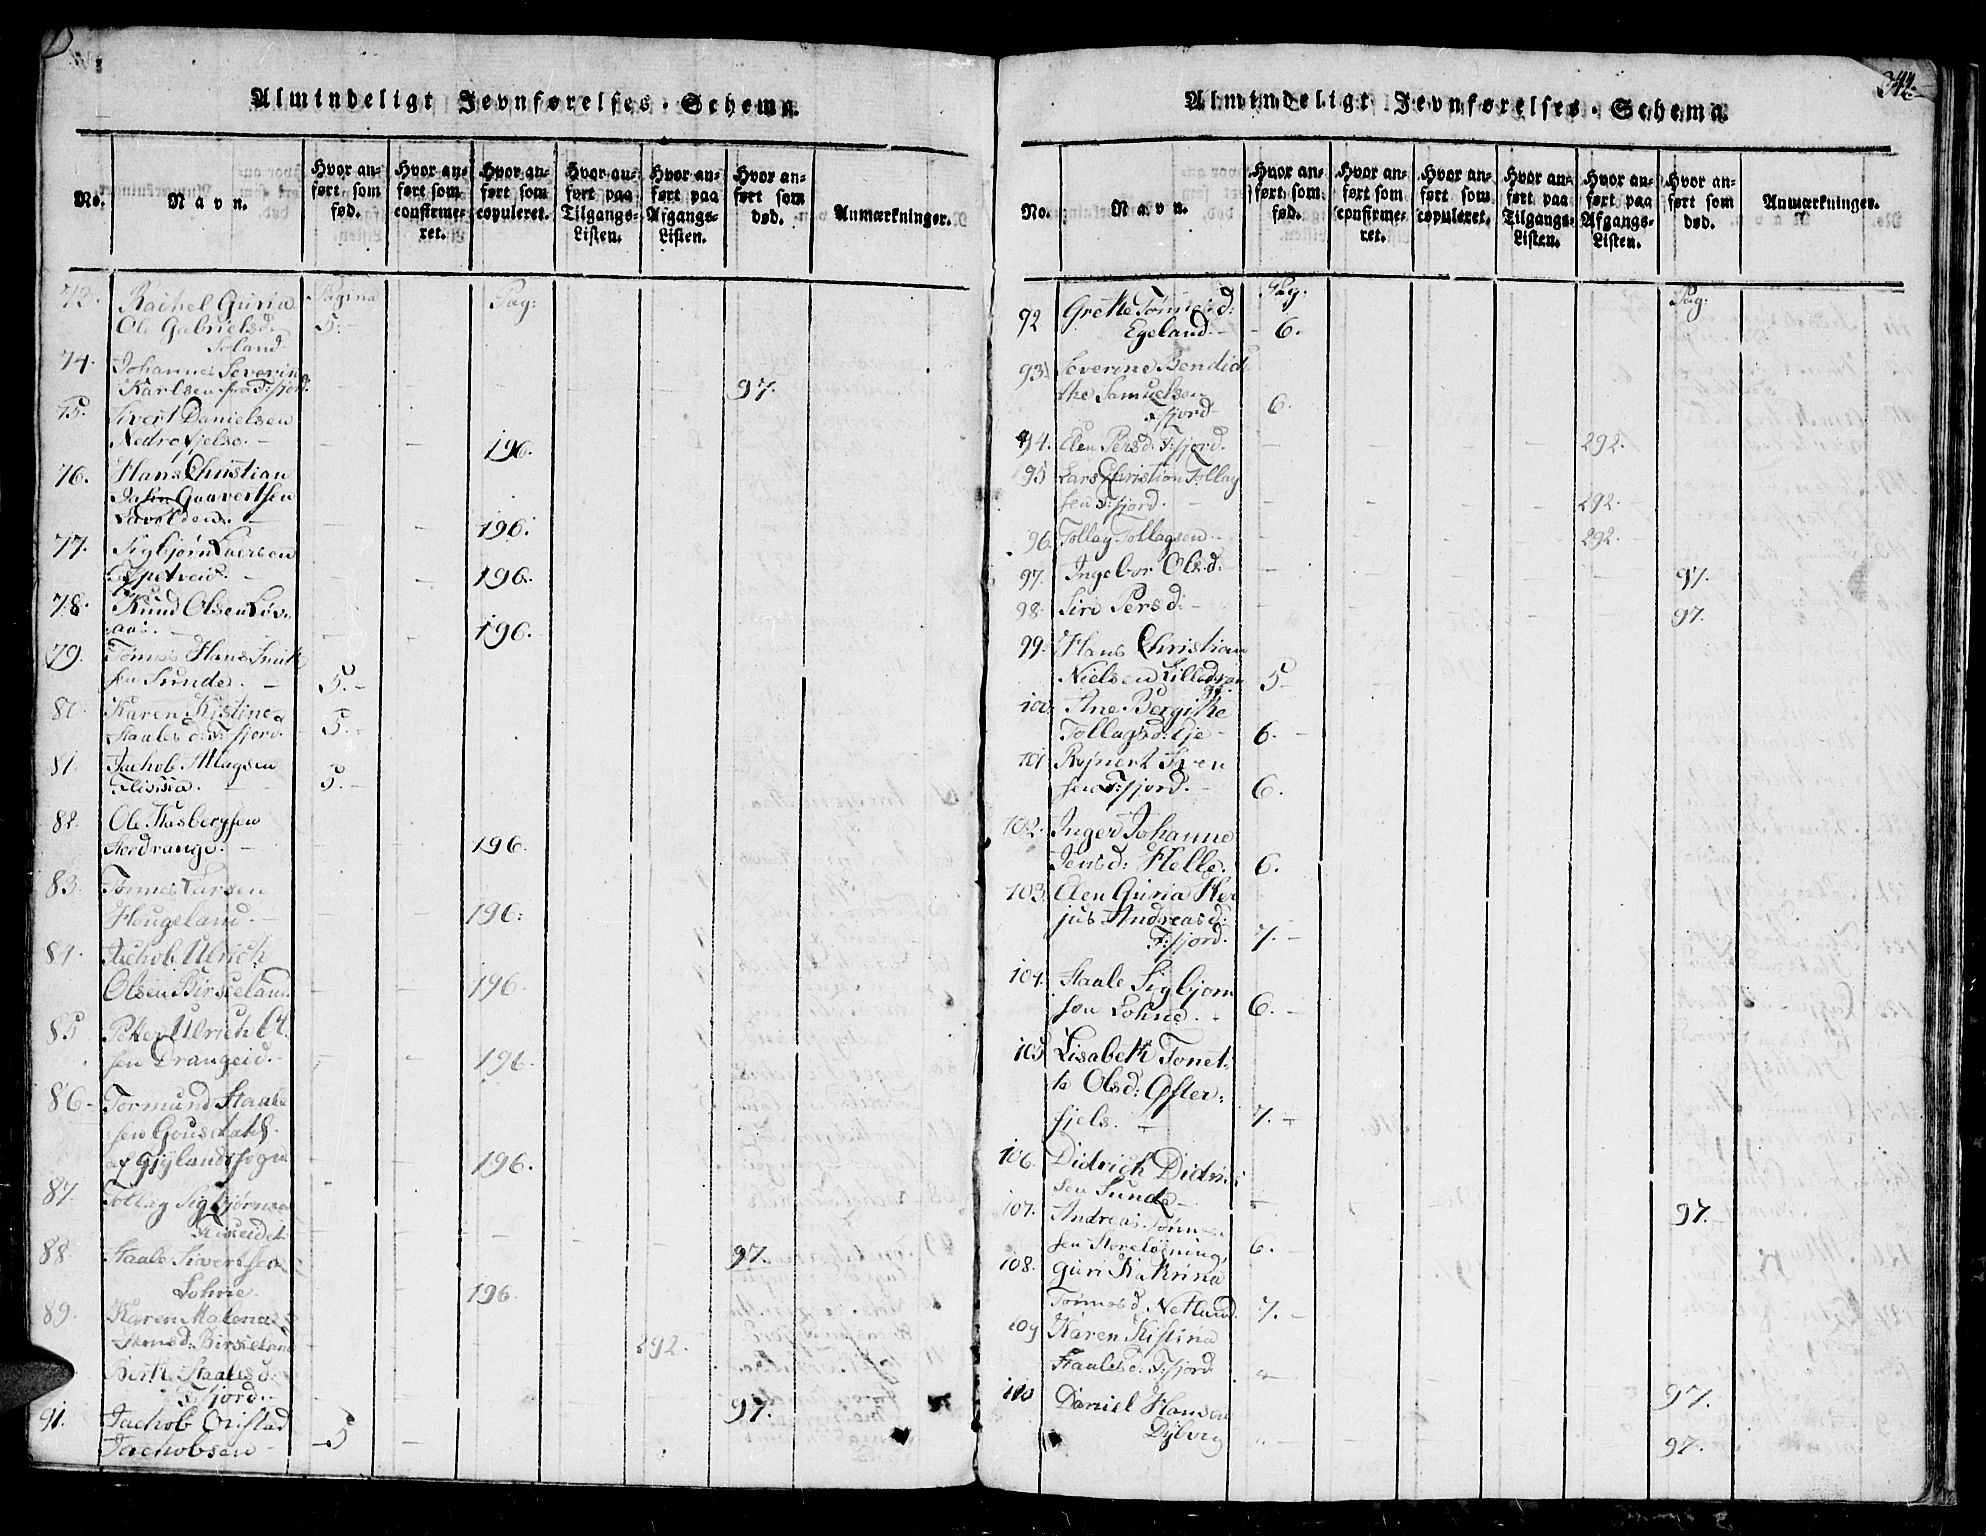 Almindeligt Jevnførelses-Schema.
No.
Navn.
Hvor anført som fød.
Hvor anført som confirmeret.
Hvor anført som copuleret.
Hvor anført paa Tilgangs-Listen.
Hvor anført paa Afgangs-Listen.
Hvor anført som død.
Anmærkninger.
73. Rachel Guria Pagina Pag:
Ole Gabrielsd: 5.-
Soland.
74. Johannes Severin
Karlsen fra F:fjord. 97.
75. Sivert Danielsen
Nedre 196.
76. Hans Christian
Gaavertsen
196.
77. Sigbjørn Laersen
Espetveid. 196.
78. Knud Olsen Løv-
aas. 196.
79. Tønnes Hans
sen Sunde. 5.-
80. Karen Kistine
Staalesd: F:fjord. 5.-
81. Jachob Atlagsen
Flissia. 5.-
82. Ole Aasbergsen
Nordrange. 196.
83. Tønnes Larsen
Hougeland. 196.
84. Jachob Ulrich
Olsen Birkeland 196.
85. Peter Ulrich Ol-
sen Drangeid. 196.
86. Tormund Staale
sen Gousdahl
af Gyland sogn 196.
87. Tollag Sigbjørnsen
88. Staale Sivertsen 97.
Lohne 196.
89. Karen Malena
Birkeland 292.
Birthe Staalesd:
F:fjord.
91. Jachob Onsstad 97.
Jachobsen 5
344.
Almindeligt Jevnførelses-Schema.
No.
Navn.
Hvor anført som fød.
Hvor anført som confirmeret.
Hvor anført som copuleret.
Hvor anført paa Tilgangs-Listen.
Hvor anført paa Afgangs-Listen.
Hvor anført som død.
Anmærkninger.
92 Grethe Tønnesd: Pag. Pag:
Egeland. 6.
93 Severine Bendid
the Samuelsen
F:fjord 6.
94. Elen Persd: F:fjord. 292.
95 Lars Christian Tollag
sen F:fjord. 292.
96. Tollag Tollagsen 292.
97. Ingebor Olsd: 97.
98. Siri Persd: 97.
99. Hans Christian
Nielsen Lilledran 5
100 Ane Bergithe
Tollagsd: Eje 6.
101 Rejnert Sven
sen F:fjord. 6.
102. Inger Johanne
Jensd: Helle. 6.
103. Elen Guria Ter
jus Andreasd:
F:fjord. 7.-
104. Staale Sigbjørn
sen Lohne. 6.-
105 Lisabeth Tonet-
te Olsd: Øster-
fjels. 7.-
106. Didrich Didrik
sen Sunde
107. Andreas Tønnes 97.
sen Store Løvning, 6.
108. Guri Kathrina
Tønnesd. Netland. 7.-
109 Karen Kistina
Staalesd: F:fjord.
110 Daniel Hansen 97.
Dybvig 97.